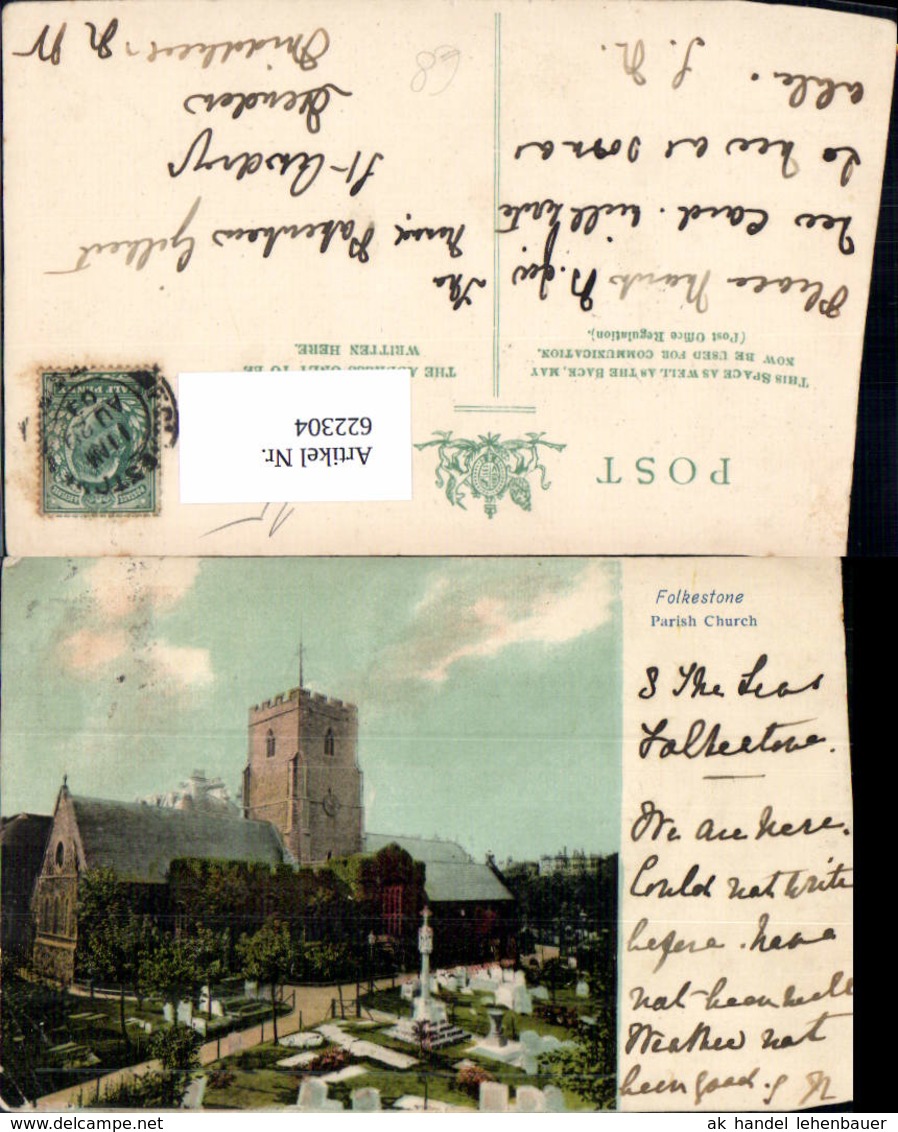 POST
THIS SPACE AS WELL AS THE BACK, MAY
NOW BE USED FOR COMMUNICATION.
(Post Office Regulation).
THE ADDRESS ONLY TO BE
WRITTEN HERE.
Artikel Nr.
622304
Please thank
card. will write
to as soon as
able.
The
Gilbert
St
Hendon
Middlesex N W
68
Folkestone
Parish Church
8 The Leas
Folkestone.
We are here.
Could not write
before. have
not been well
Weather not
been good.
ak handel lehenbauer